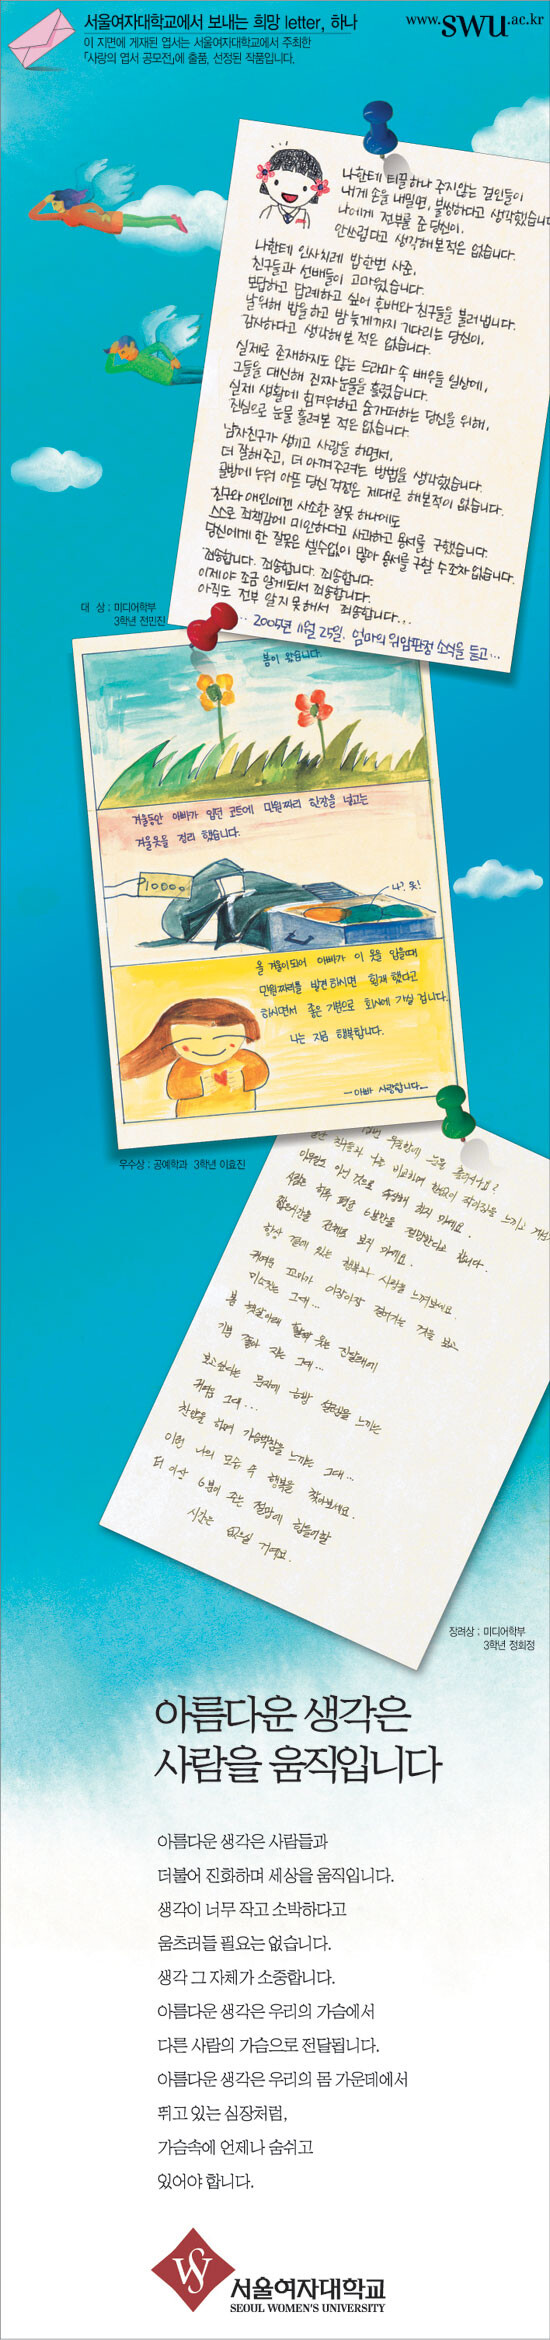 서울여자대학교에서 보내는 희망 letter, 하나
www.swu.ac.kr
이 지면에 게재된 엽서는 서울여자대학교에서 주최한
「사랑의 엽서 공모전」에 출품, 선정된 작품입니다.
나한테 티끌 하나 주지않는 걸인들이
내게 손을 내밀면, 불쌍하다고 생각했습니다
나에게 전부를 준 당신이,
안쓰럽다고 생각해본적은 없습니다.
나한테 인사치레 밥한번 사준,
친구들과 선배들이 고마웠습니다.
보답하고 답례하고 싶어 후배와 친구들을 불러냅니다.
날 위해 밥을하고 밤 늦게까지 기다리는 당신이,
감사하다고 생각해 본 적은 없습니다.
실제로 존재하지도 않는 드라마 속 배우들 일상에,
그들을 대신해 진짜 눈물을 흘렸습니다.
실제 생활에 힘겨워하고 슬가퍼하는 당신을 위해,
진심으로 눈물 흘려본 적은 없습니다.
남자친구가 생기고 사랑을 하면서,
더 잘해주고, 더 아껴주려는 방법을 생각했습니다.
골방에 누워 아픈 당신 걱정은 제대로 해본적이 없습니다.
친구와 애인에겐 사소한 잘못 하나에도
스스로 죄책감에 미안하다고 사과하고 용서를 구했습니다.
당신에게 한 잘못은 셀수없이 많아 용서를 구할 수조차 없습니다.
죄송합니다. 죄송합니다. 죄송합니다.
이제야 조금 알게되서 죄송합니다.
아직도 전부 알지 못해서 죄송합니다...
... 2005년 11월 25일. 엄마의 위암판정 소식을 듣고...
대 상 : 미디어학부
3학년 전민진
봄이 왔습니다.
겨울동안 아빠가 입던 코트에 만원짜리 한장을 넣고는
겨울옷을 정리 했습니다.
₩10000
나? 옷!
올 겨울이되어 아빠가 이 옷을 입을때
만원짜리를 발견 하시면 횡재 했다고
하시면서 좋은 기분으로 회사에 가실 겁니다.
나는 지금 행복합니다.
-아빠 사랑합니다-
우수상 : 공예학과 3학년 이효진
나를 비교하며 한없이 작아짐을 느끼고
아무것도 아닌 것으로 속상해 하지 마세요.
사람은 하루 평균 6분만을 절망한다고 합니다.
짧은시간을 전체로 보지 마세요.
항상 곁에 있는 행복과 사랑을 느껴보세요.
귀여운 꼬마가 아장아장 걸어가는 것을 보고
미소짓는 그대...
봄 햇살아래 활짝 웃는 진달래에
기분 좋아 지는 그대...
보고싶다는 문자에 금방 설렘을 느끼는
귀여운 그대...
찬양을 하며 가슴벅참을 느끼는 그대...
이런 나의 모습 속 행복을 찾아보세요.
더 이상 6분이 주는 절망에 힘들어할
시간은 없으실 거예요.
장려상 : 미디어학부
3학년 정희정
아름다운 생각은
사람을 움직입니다
아름다운 생각은 사람들과
더불어 진화하며 세상을 움직입니다.
생각이 너무 작고 소박하다고
움츠러들 필요는 없습니다.
생각 그 자체가 소중합니다.
아름다운 생각은 우리의 가슴에서
다른 사람의 가슴으로 전달됩니다.
아름다운 생각은 우리의 몸 가운데에서
뛰고 있는 심장처럼,
가슴속에 언제나 숨쉬고
있어야 합니다.
서울여자대학교
SEOUL WOMEN'S UNIVERSITY